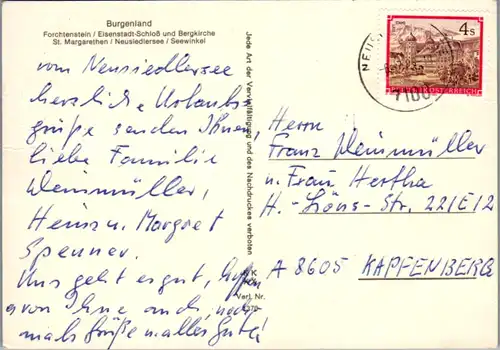 Burgenland
Forchtenstein / Eisenstadt-Schloß und Bergkirche
St. Margarethen / Neusiedlersee / Seewinkel
vom Neusiedlersee
herzliche Urlaubs
grüße senden Ihnen,
liebe Familie
Weinmüller,
Heinz u. Margret
Spenner.
Uns geht es gut, hoffen
von Ihne auch, noch
mals Grüße u. alles Gute!
Jede Art der Vervielfältigung und des Nachdruckes verboten
Verl. Nr.
4s
ÖSTERREICH
NEUS
7100
Herrn
Franz Weinmüller
u. Frau Hertha
H.-Löns-Str. 22/E/2
A 8605 KAPFENBERG